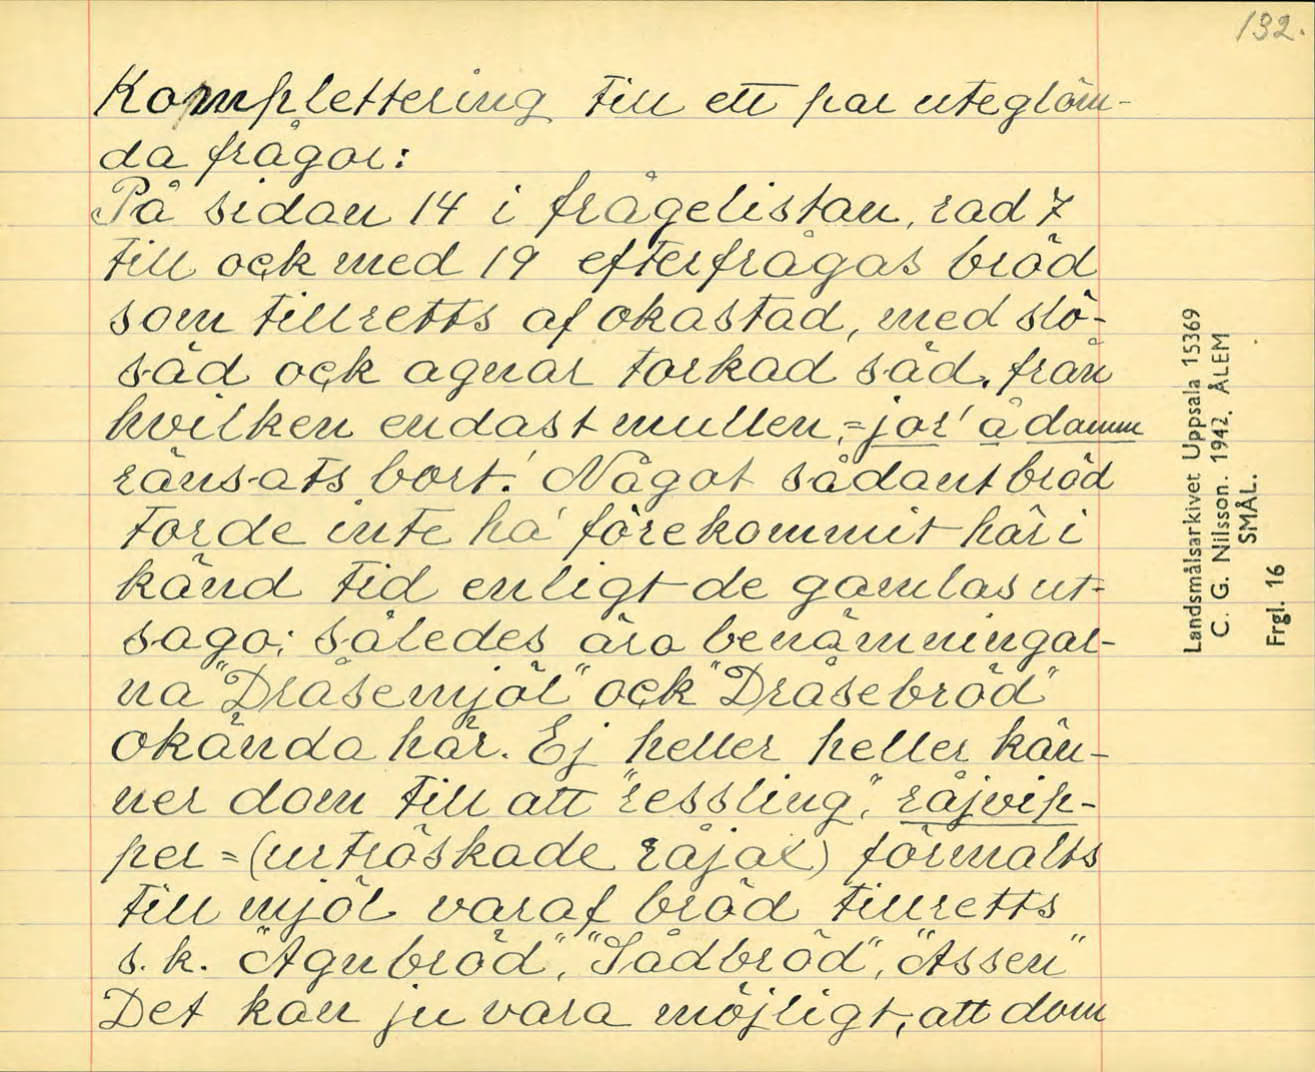 132.
Komplettering till ett par uteglöm-
da frågor:
På sidan 14 i frågelistan, rad 7
till ock med 19 efterfrågas bröd
som tillretts af okastad, med slö-
säd ock agnar torkad säd, från
hvilken endast mullen, =jor' å damm
ränsats bort.' Något sådant bröd
torde inte ha' förekommit här i
känd tid enligt de gamlas ut-
sago; således äro benämningar-
na "Dråsemjöl" ock "Dråsebröd"
okända här. Ej heller heller kän-
ner dom till att "ressling", råjvip-
per = (urtröskade råjax) förmalts
till mjöl varaf bröd tillretts
s.k. "Agnbröd", "Sådbröd", "Assen"
Det kan ju vara möjligt, att dom
Landsmålsarkivet Uppsala 15369
C. G. Nilsson. 1942. ÅLEM
SMÅL.
Frgl. 16